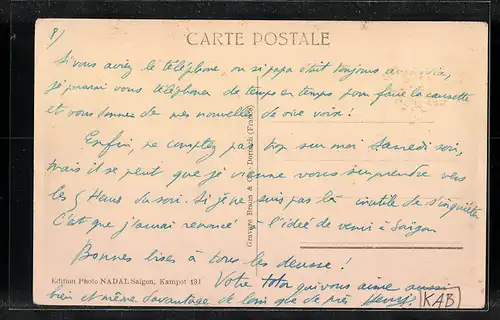 8/
CARTE POSTALE
Si vous aviez le téléphone, ou si papa était toujours
je pourrai vous téléphoner de temps en temps pour faire la causette
et vous donner de mes nouvelles de vive voix!
Enfin, ne comptez pas trop sur moi Samedi soir,
mais il se peut que je vienne vous surprendre vers
les 5 Heures du soir. Si je ne suis pas là inutile de s'inquiéter
C'est que j'aurai renoncé à l'idée de venir à Saigon
Bonnes bises à tous les deusse!
Edition Photo NADAL Saigon, Kampot 131
Votre totor qui vous aime aussi
bien et même davantage de loin que de près
KAB
Gravure Braun & Cie Dornach (France)